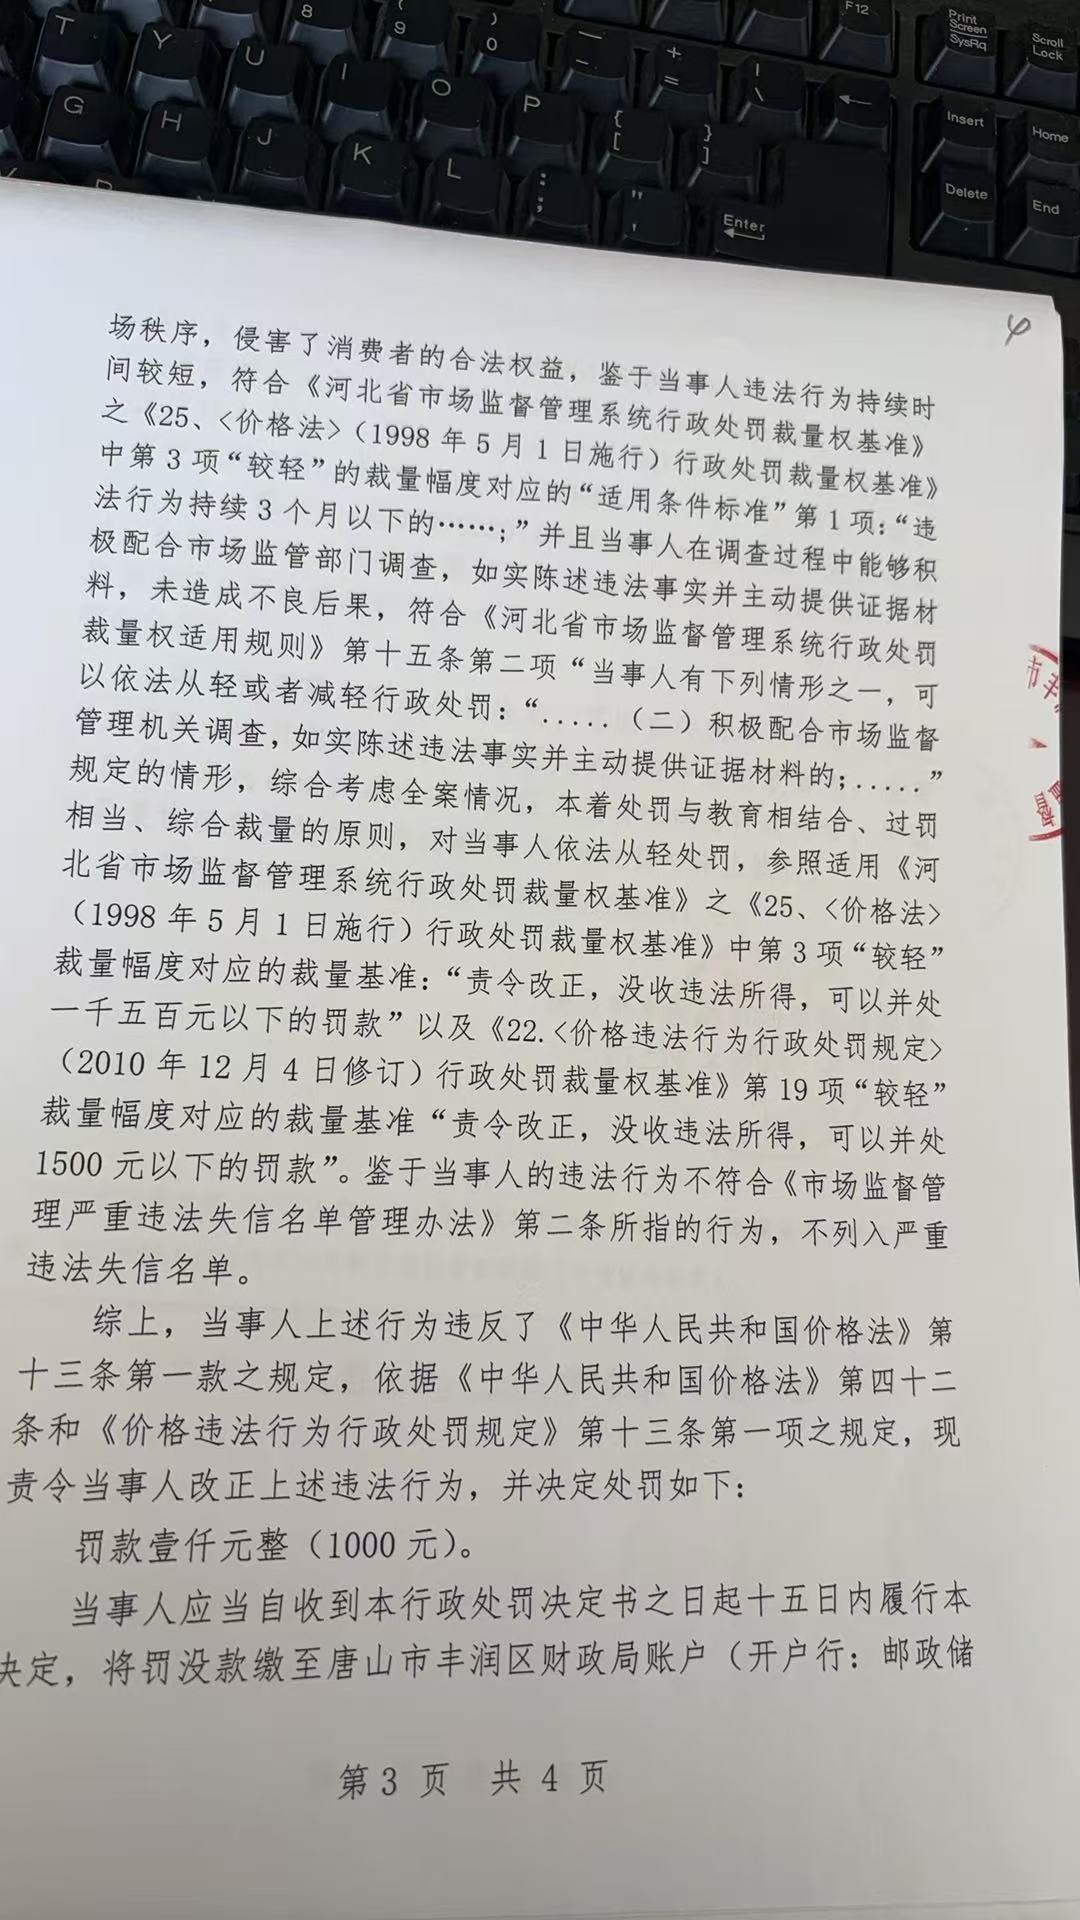 T
Y
U
8
I
(
9
O
)
0
P
—
-
{
[
+
=
}
]
|
\
F12
Print
Screen
SysRq
Scroll
Lock
Insert
Home
Delete
End
G
H
J
K
L
:
;
"
'
Enter
场秩序，侵害了消费者的合法权益，鉴于当事人违法行为持续时
间较短，符合《河北省市场监督管理系统行政处罚裁量权基准》
之《25、<价格法>（1998 年 5 月 1 日施行）行政处罚裁量权基准》
中第 3 项“较轻”的裁量幅度对应的“适用条件标准”第 1 项：“违
法行为持续 3 个月以下的……；”并且当事人在调查过程中能够积
极配合市场监管部门调查，如实陈述违法事实并主动提供证据材
料，未造成不良后果，符合《河北省市场监督管理系统行政处罚
裁量权适用规则》第十五条第二项“当事人有下列情形之一，可
以依法从轻或者减轻行政处罚：“.....（二）积极配合市场监督
管理机关调查，如实陈述违法事实并主动提供证据材料的；.....”
规定的情形，综合考虑全案情况，本着处罚与教育相结合、过罚
相当、综合裁量的原则，对当事人依法从轻处罚，参照适用《河
北省市场监督管理系统行政处罚裁量权基准》之《25、<价格法>
（1998 年 5 月 1 日施行）行政处罚裁量权基准》中第 3 项“较轻”
裁量幅度对应的裁量基准：“责令改正，没收违法所得，可以并处
一千五百元以下的罚款”以及《22.<价格违法行为行政处罚规定>
（2010 年 12 月 4 日修订）行政处罚裁量权基准》第 19 项“较轻”
裁量幅度对应的裁量基准“责令改正，没收违法所得，可以并处
1500 元以下的罚款”。鉴于当事人的违法行为不符合《市场监督管
理严重违法失信名单管理办法》第二条所指的行为，不列入严重
违法失信名单。
综上，当事人上述行为违反了《中华人民共和国价格法》第
十三条第一款之规定，依据《中华人民共和国价格法》第四十二
条和《价格违法行为行政处罚规定》第十三条第一项之规定，现
责令当事人改正上述违法行为，并决定处罚如下：
罚款壹仟元整（1000 元）。
当事人应当自收到本行政处罚决定书之日起十五日内履行本
决定，将罚没款缴至唐山市丰润区财政局账户（开户行：邮政储
第 3 页 共 4 页